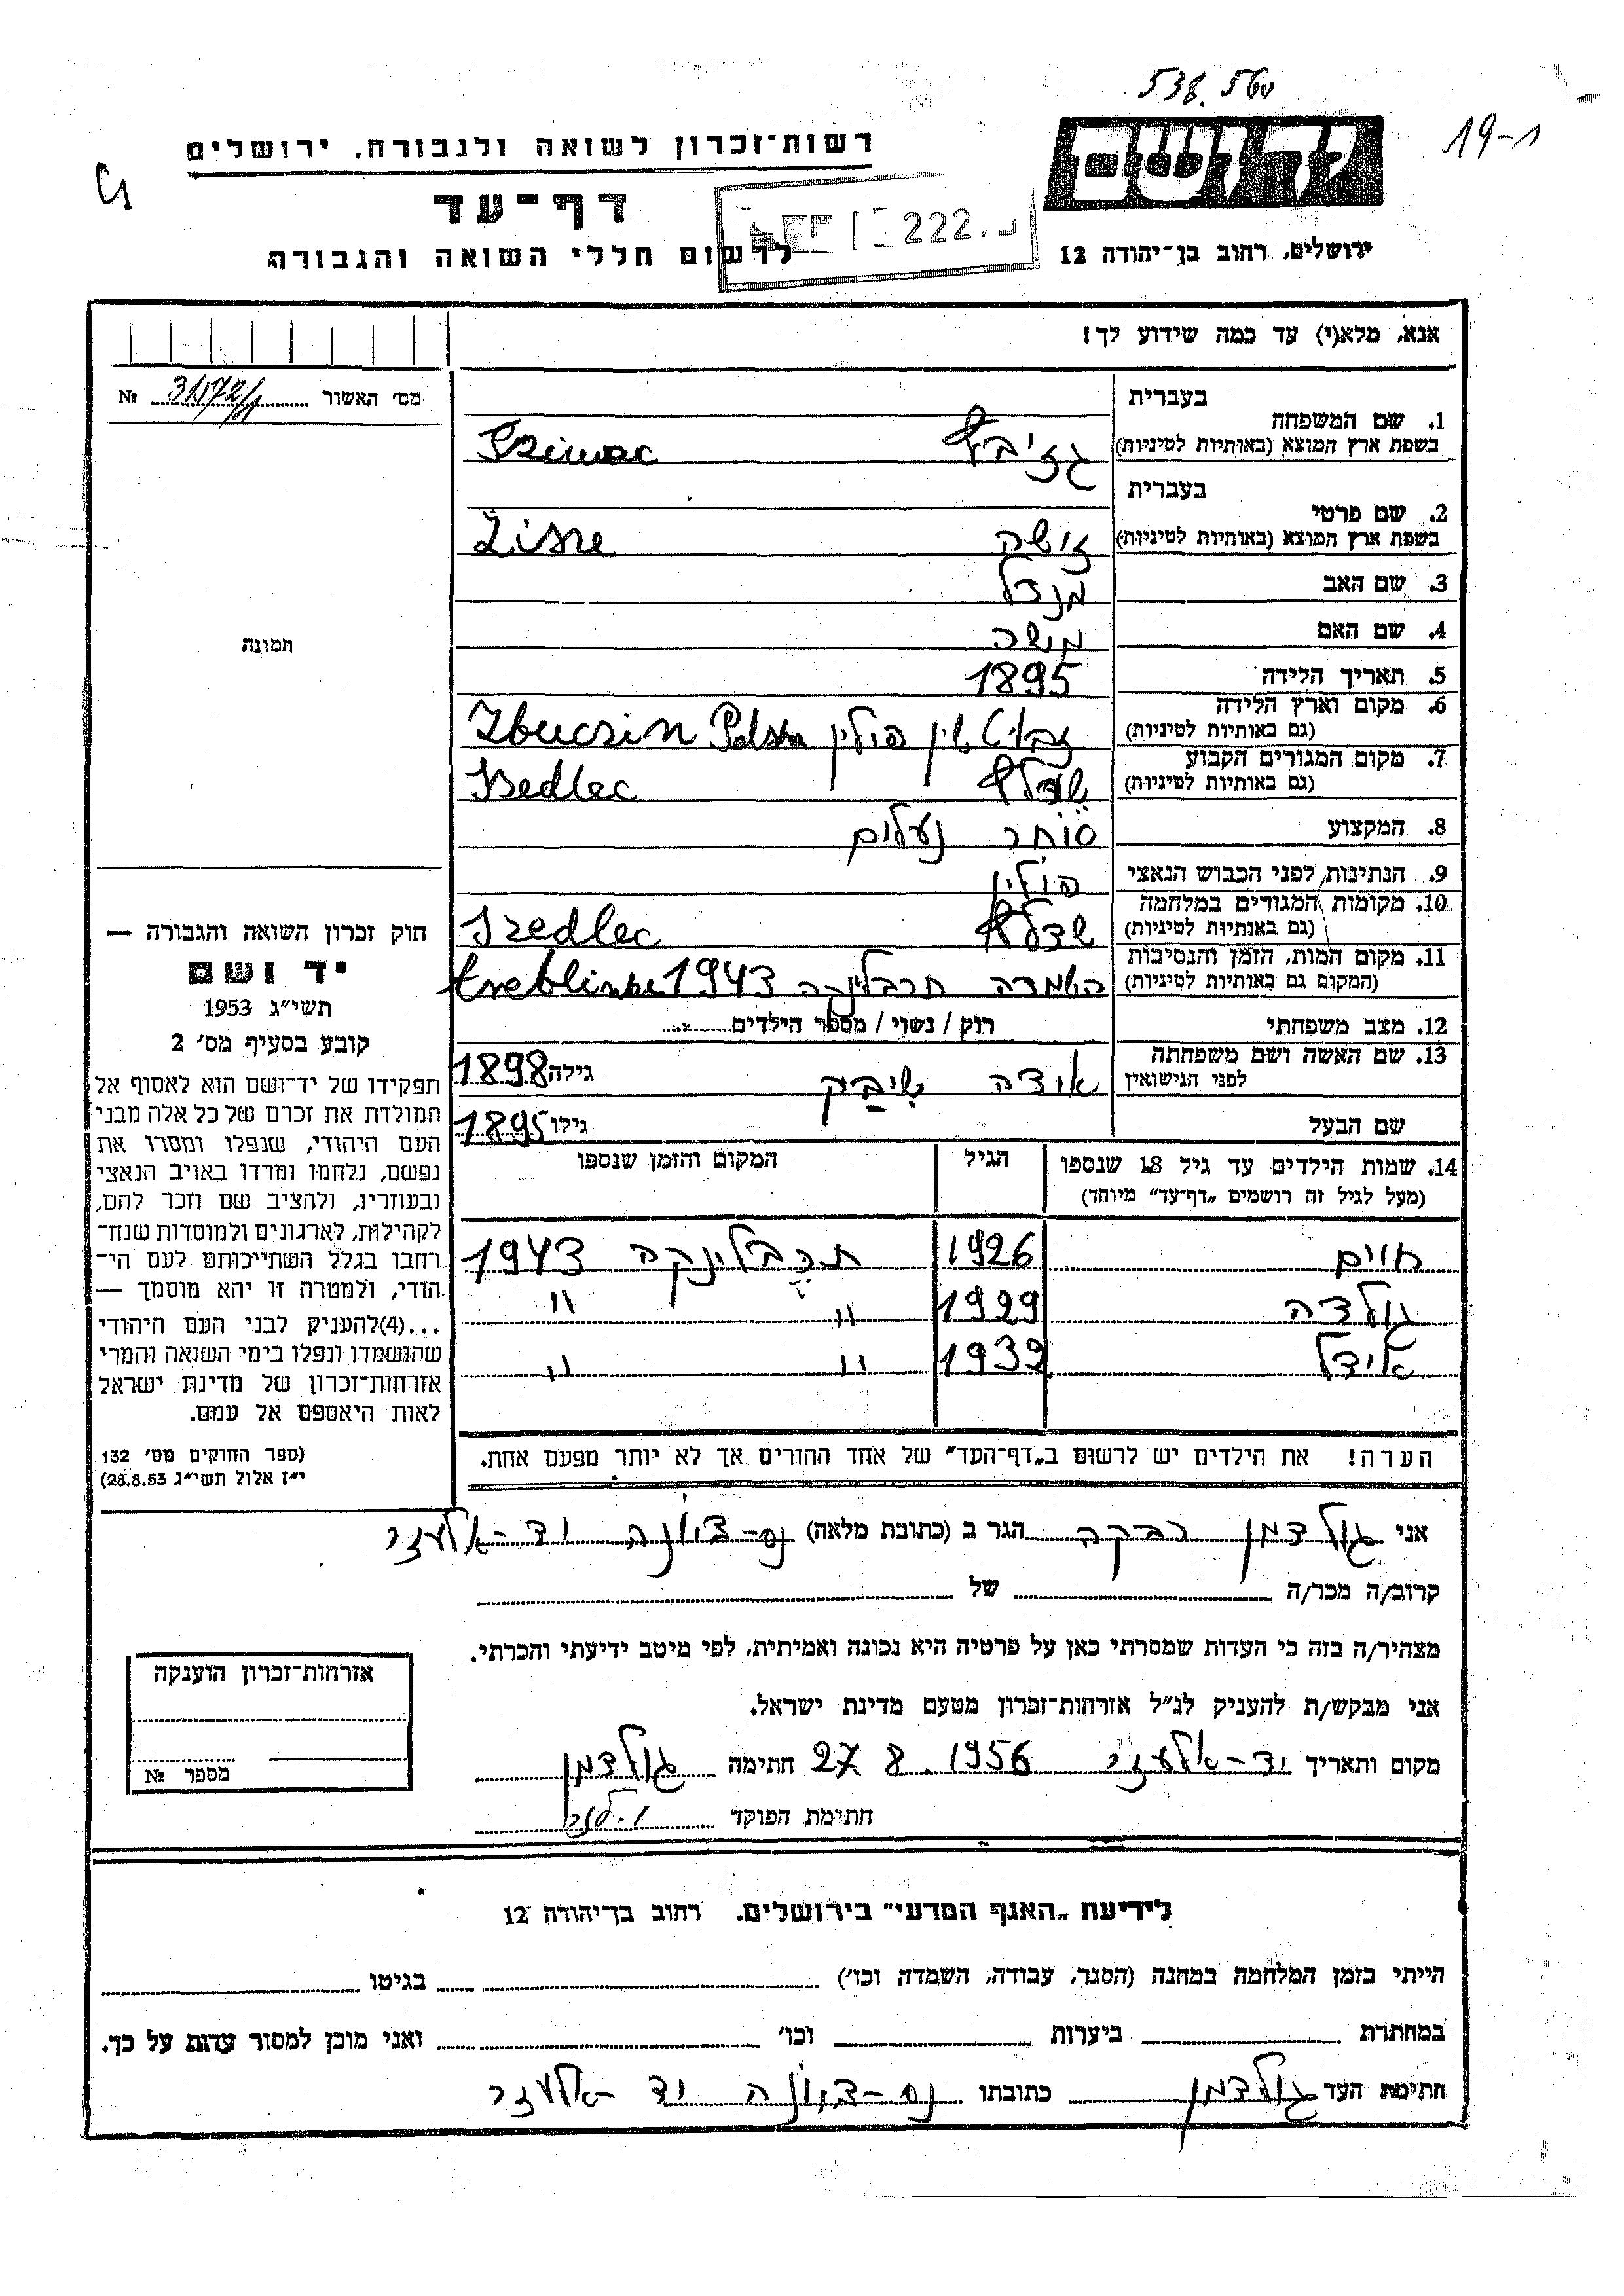 538.560
19-1
יד ושם
רשות־זכרון לשואה ולגבורה, ירושלים
דף־עד
לרשום חללי השואה והגבורה
222.
ירושלים, רחוב בן־יהודה 12
אנא, מלא(י) עד כמה שידוע לך!
מס' האשור № 31572/1
תמונה
חוק זכרון השואה והגבורה —
יד ושם
תשי״ג 1953
קובע בסעיף מס' 2
תפקידו של יד־ושם הוא לאסוף אל
המולדת את זכרם של כל אלה מבני
העם היהודי, שנפלו ומסרו את
נפשם, נלחמו ומרדו באויב הנאצי
ובעוזריו, ולהציב שם וזכר להם,
לקהילות, לארגונים ולמוסדות שנח־
רחבו בגלל השתייכותם לעם הי־
הודי, ולמטרה זו יהא מוסמך —
...(4) להעניק לבני העם היהודי
שהושמדו ונפלו בימי השואה והמרי
אזרחות־זכרון של מדינת ישראל
לאות היאספם אל עמם.
(ספר החוקים מס' 132
י״ז אלול תשי״ג 28.8.53)
בעברית
1. שם המשפחה
בשפת ארץ המוצא (באותיות לטיניות)
בעברית
2. שם פרטי זישה Zisze
בשפת ארץ המוצא (באותיות לטיניות)
3. שם האב מנדל
4. שם האם מושה
5. תאריך הלידה 1895
6. מקום וארץ הלידה פולין Zbuczin Polska
(גם באותיות לטיניות)
7. מקום המגורים הקבוע שדלץ Szedlec
(גם באותיות לטיניות)
8. המקצוע סוחר נעלים
9. הנתינות לפני הכבוש הנאצי פולין
10. מקומות המגורים במלחמה שדלץ Szedlec
(גם באותיות לטיניות)
11. מקום המות, הזמן והנסיבות השמדה תרבלינקה 1943 treblinke
(המקום גם באותיות לטיניות)
12. מצב משפחתי רוק / נשוי / מספר הילדים
13. שם האשה ושם משפחתה אידה גילה 1898
לפני הנישואין
שם הבעל גילו 1895
14. שמות הילדים עד גיל 18 שנספו הגיל המקום והזמן שנספו
(מעל לגיל זה רושמים „דף־עד״ מיוחד)
חיים 1926 תרבלינקה 1943
גולדה 1929 " "
אידל 1932 " "
הערה! את הילדים יש לרשום ב„דף־העד״ של אחד ההורים אך לא יותר מפעם אחת.
אני גולדמן רבקה הגר ב (כתובת מלאה) נס-ציונה יד-אלעזר
קרוב/ה מכר/ה של
מצהיר/ה בזה כי העדות שמסרתי כאן על פרטיה היא נכונה ואמיתית, לפי מיטב ידיעתי והכרתי.
אני מבקש/ת להעניק לנ״ל אזרחות־זכרון מטעם מדינת ישראל.
מקום ותאריך יד-אלעזר 27.8.1956 חתימה גולדמן
חתימת הפוקד
אזרחות־זכרון הוענקה
מספר №
לידיעת „האגף המדעי״ בירושלים, רחוב בן־יהודה 12
הייתי בזמן המלחמה במחנה (הסגר, עבודה, השמדה וכו') בגיטו
במחתרת ביערות וכו' ואני מוכן למסור עדות על כך.
חתימת העד גולדמן כתובתו נס-ציונה יד-אלעזר